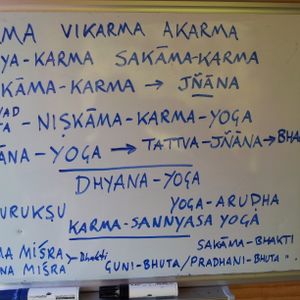 RMA VIKARMA AKARMA
YA-KARMA SAKĀMA-KARMA
KĀMA-KARMA → JÑĀNA
YAD
TA-NIṢKĀMA-KARMA-YOGA
ĀNA-YOGA → TATTVA-JÑĀNA → BHA
DHYANA-YOGA
YOGA-ARUḌHA
URUKṢU
KARMA-SANNYASA YOGA
SAKĀMA-BHAKTI
MA MIŚRA
NA MIŚRA Bhakti
GUNI-BHUTA/PRADHANI-BHUTA " ..